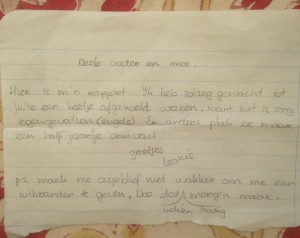 Beste vader en moe.
Hier is m'n rapport. Ik heb zolang gewacht tot
jullie een beetje afgekoeld waren, want het is erg
tegengevallen (engels) En anders plak er maar
een half jaartje aanvast.
groetjes
Leonie
ps. maak me asjeblief niet wakker om me een
uitbrander te geven, Doe dat morgen maar.